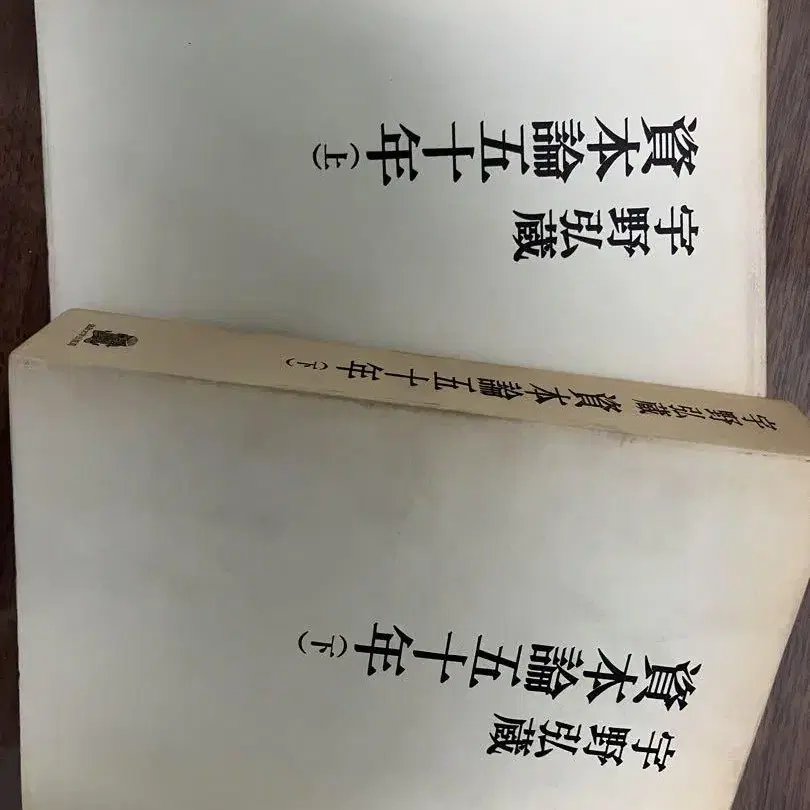 資本論五十年(上)
宇野弘蔵
宇野弘蔵 資本論五十年(下)
資本論五十年(下)
宇野弘蔵